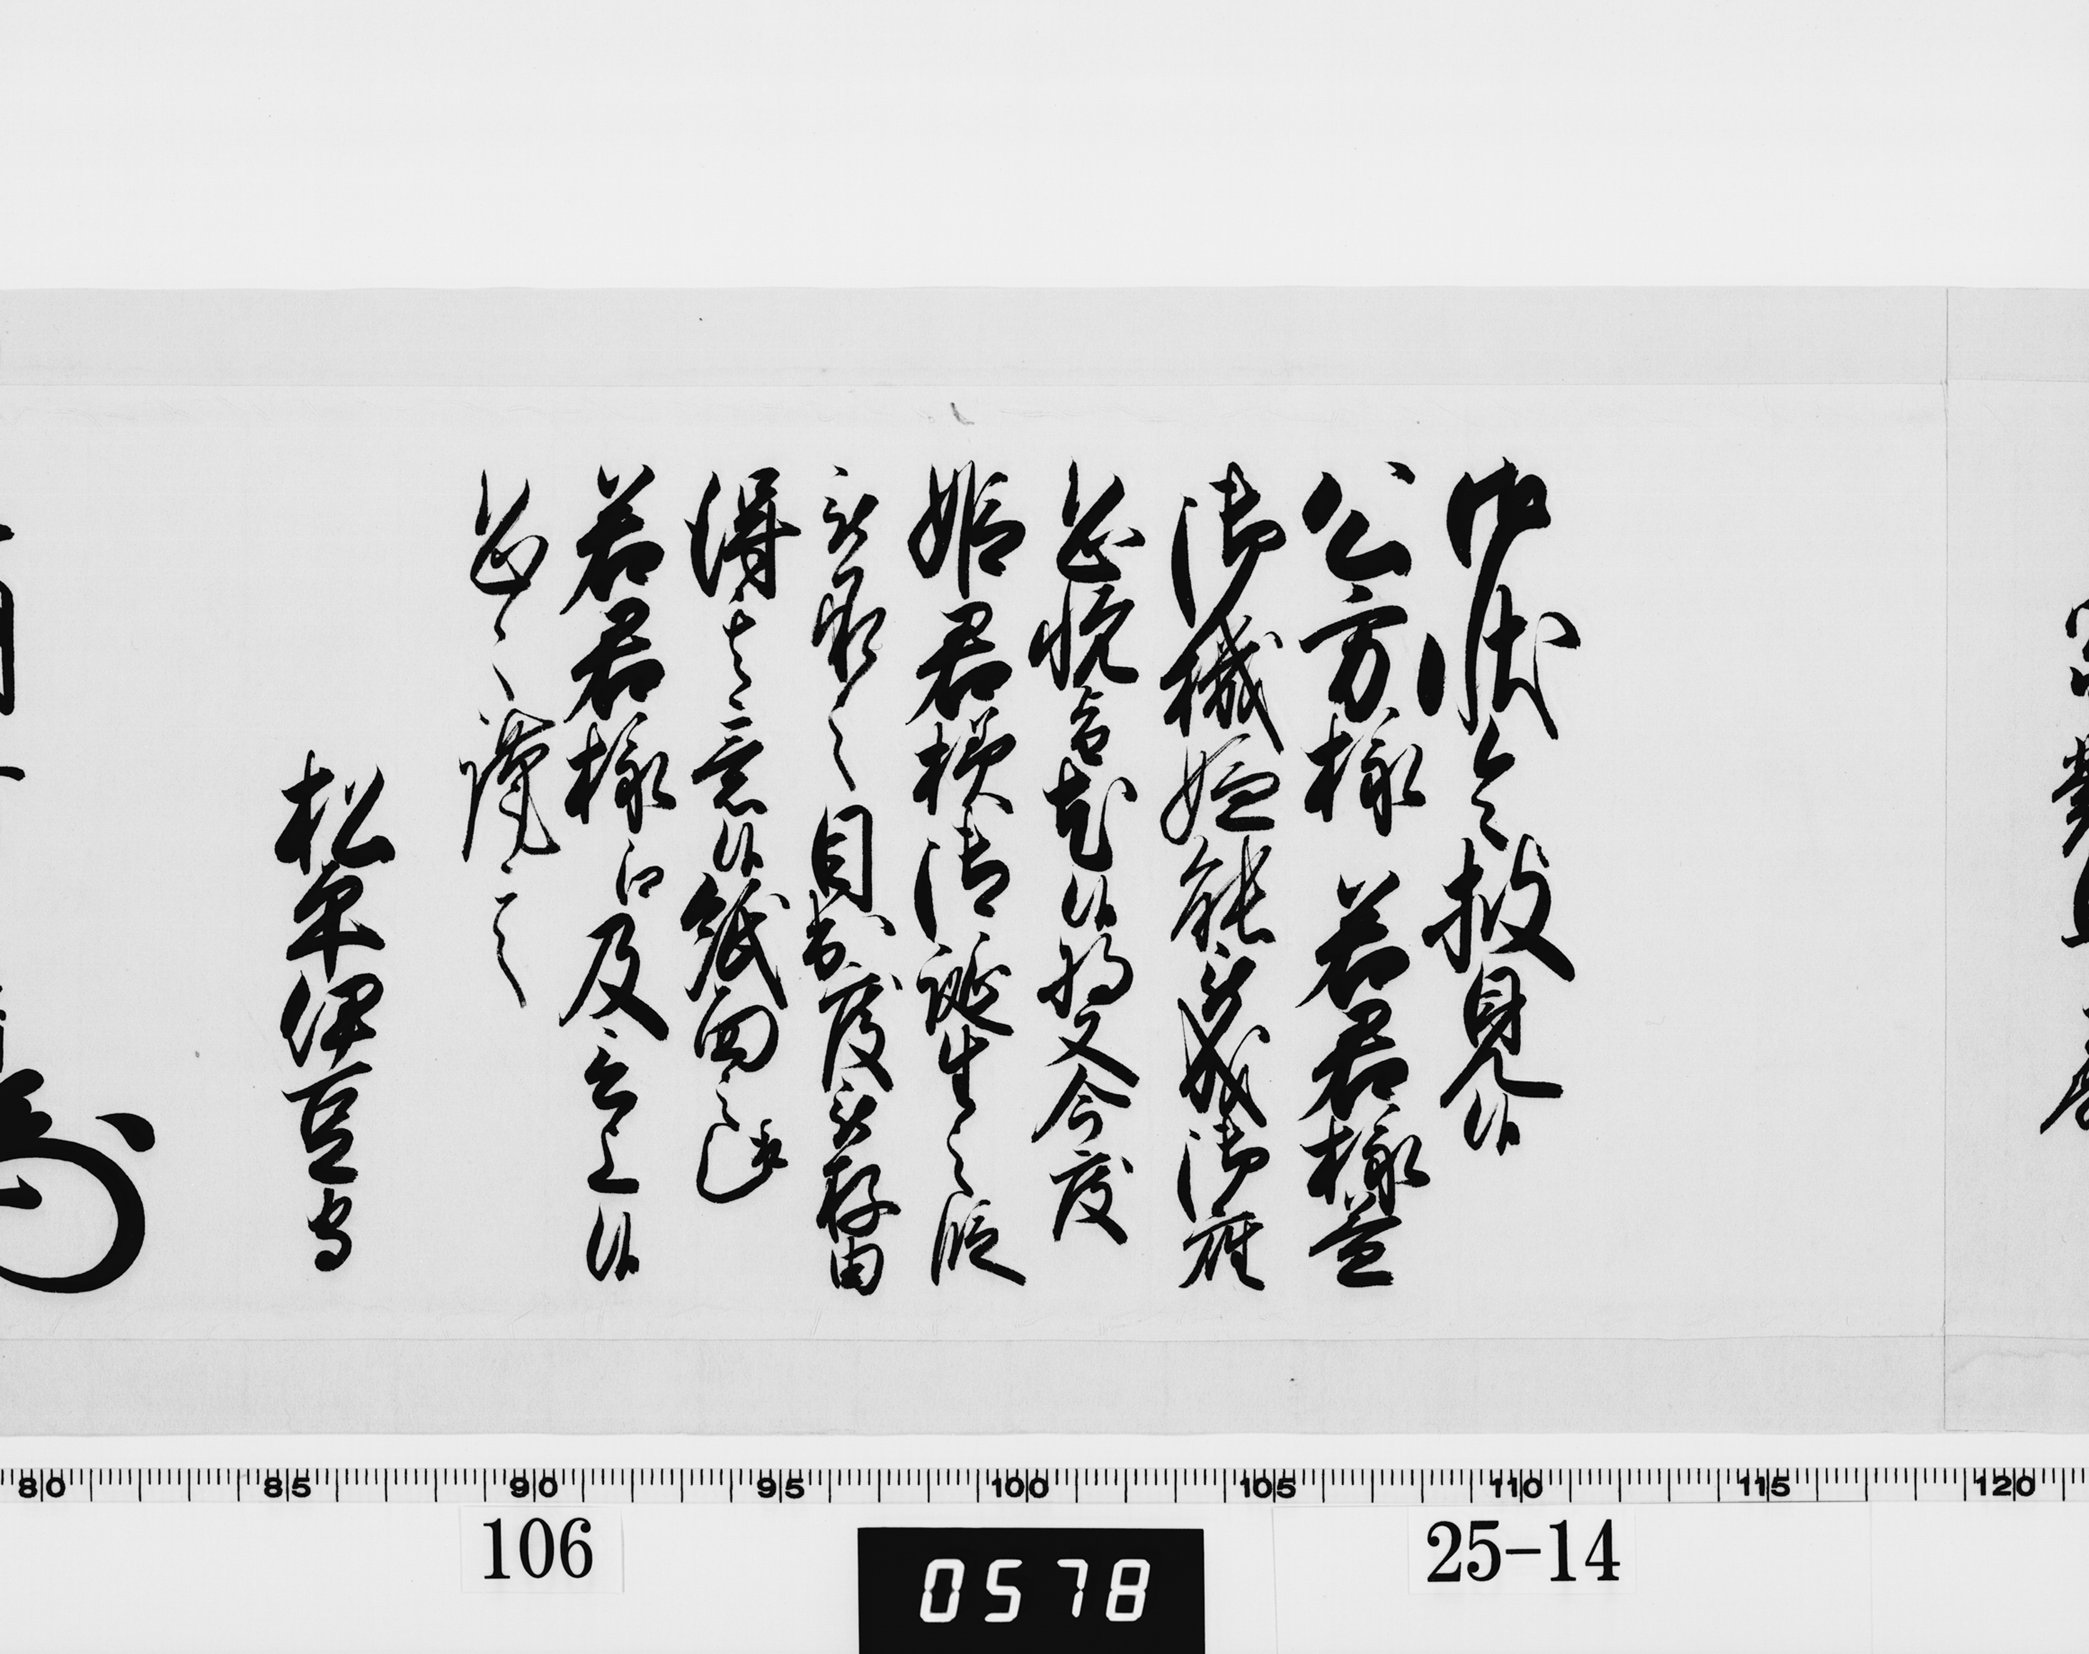 御状令披見候
公方様 若君様益
御機嫌能被成御座
恐悦旨尤候将又今度
姫君様御誕生之段
被承之目出度被存由
得其意候紙面之趣
若君様江及言上候
恐々謹言
松平伊豆守
80 85 90 95 100 105 110 115 120
106
0578
25-14